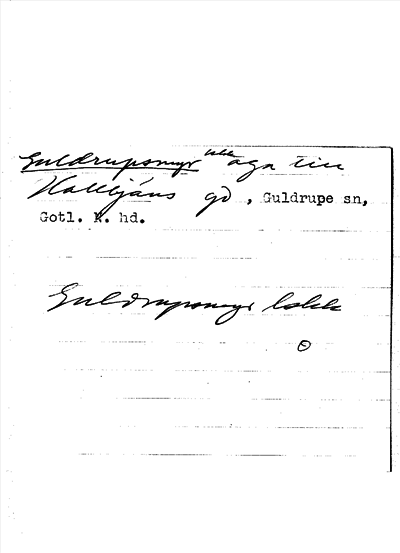 Guldrupsmyr äga till
Hallbjäns gd, Guldrupe sn,
Gotl. hd.
Guldrupsmyr